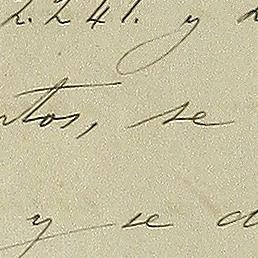 2.241. y
ntos, se
y se d